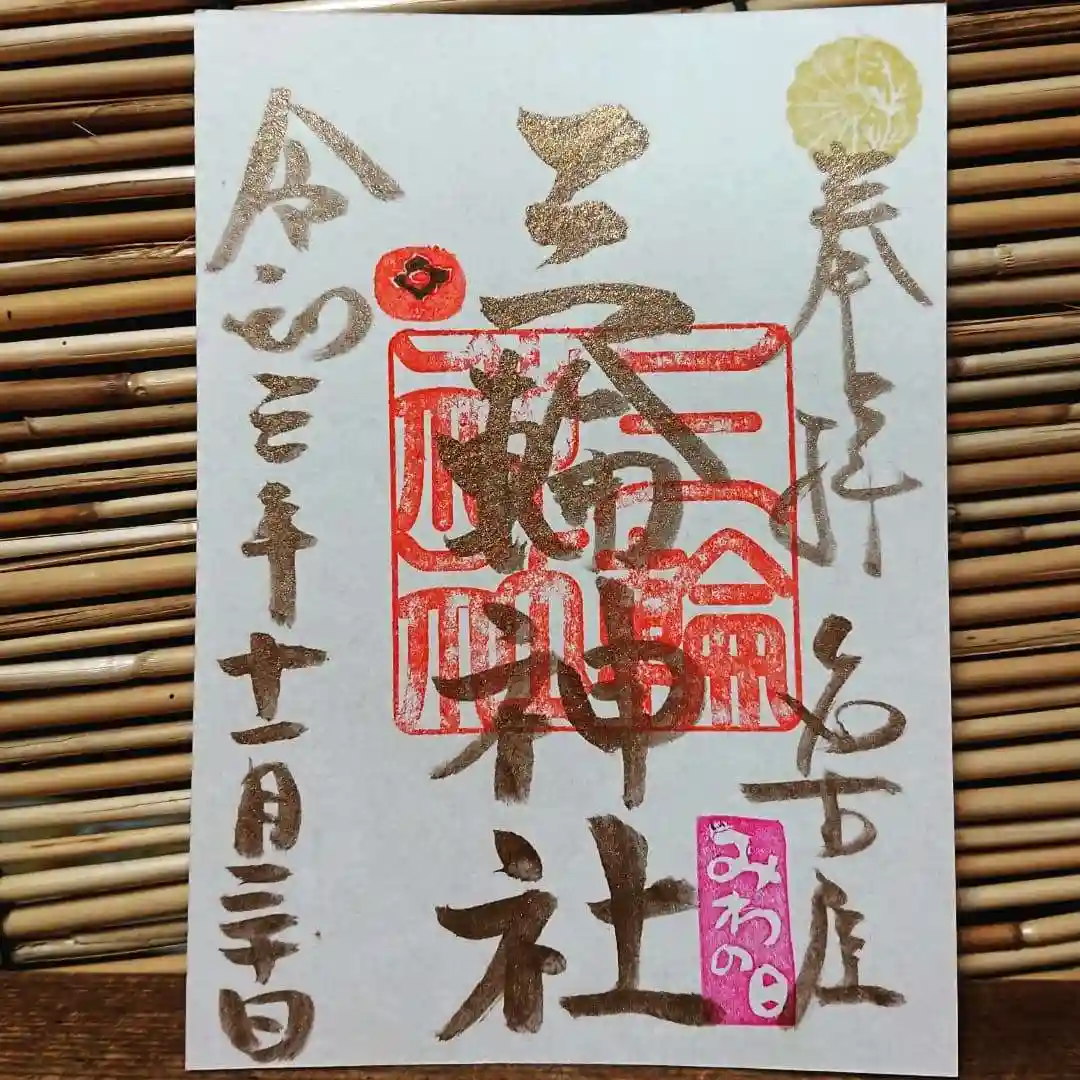 奉拝 名古屋
三輪神社
三輪神社
みわの日
令和三年十一月三十日